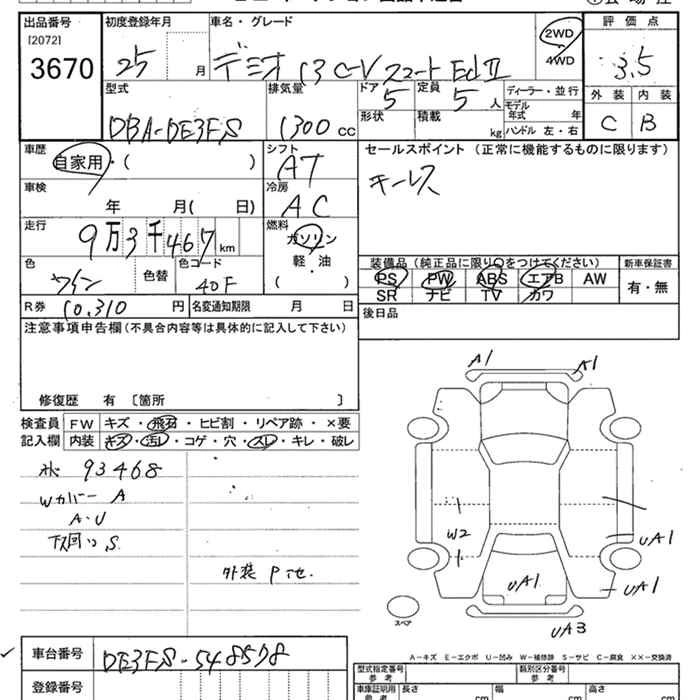 出品番号 [2072] 3670
初度登録年月 25 月
車名・グレード デミオ 13 C-V スマート Ed II
2WD・4WD
評価点 3.5
外装 C 内装 B
型式 DBA-DE3FS
排気量 1300 cc
ドア 5 定員 5 人
形状 積載 kg
ディーラー・並行
モデル年式 年
ハンドル 左・右
車歴 自家用・( )
シフト AT
セールスポイント (正常に機能するものに限ります)
キーレス
車検 年 月( 日)
冷房 AC
走行 9万3千467km
燃料 ガソリン・軽油 ( )
色 ワイン 色替 色コード 40F
装備品(純正品に限り○をつけてください) 新車保証書
PS PW ABS エアB AW 有・無
SR ナビ TV カワ
R券 10,310 円 名変通知期限 月 日
後日品
注意事項申告欄(不具合内容等は具体的に記入して下さい)
修復歴 有 〔箇所 〕
検査員記入欄 FW キズ・飛石・ヒビ割・リペア跡・×要
内装 キズ・汚れ・コゲ・穴・スレ・キレ・破レ
93468
Wカバー A
A・U
下回り S
外装 P
A1 A1
W2
UA1
UA1
UA1
UA3
スペア
A-キズ E-エクボ U-凹み W-補修跡 S-サビ C-腐食 ××-交換済
車台番号 DE3FS-548578
登録番号
型式指定番号 参考 類別区分番号 参考
車庫証明用 参考 長さ cm 幅 cm 高さ cm